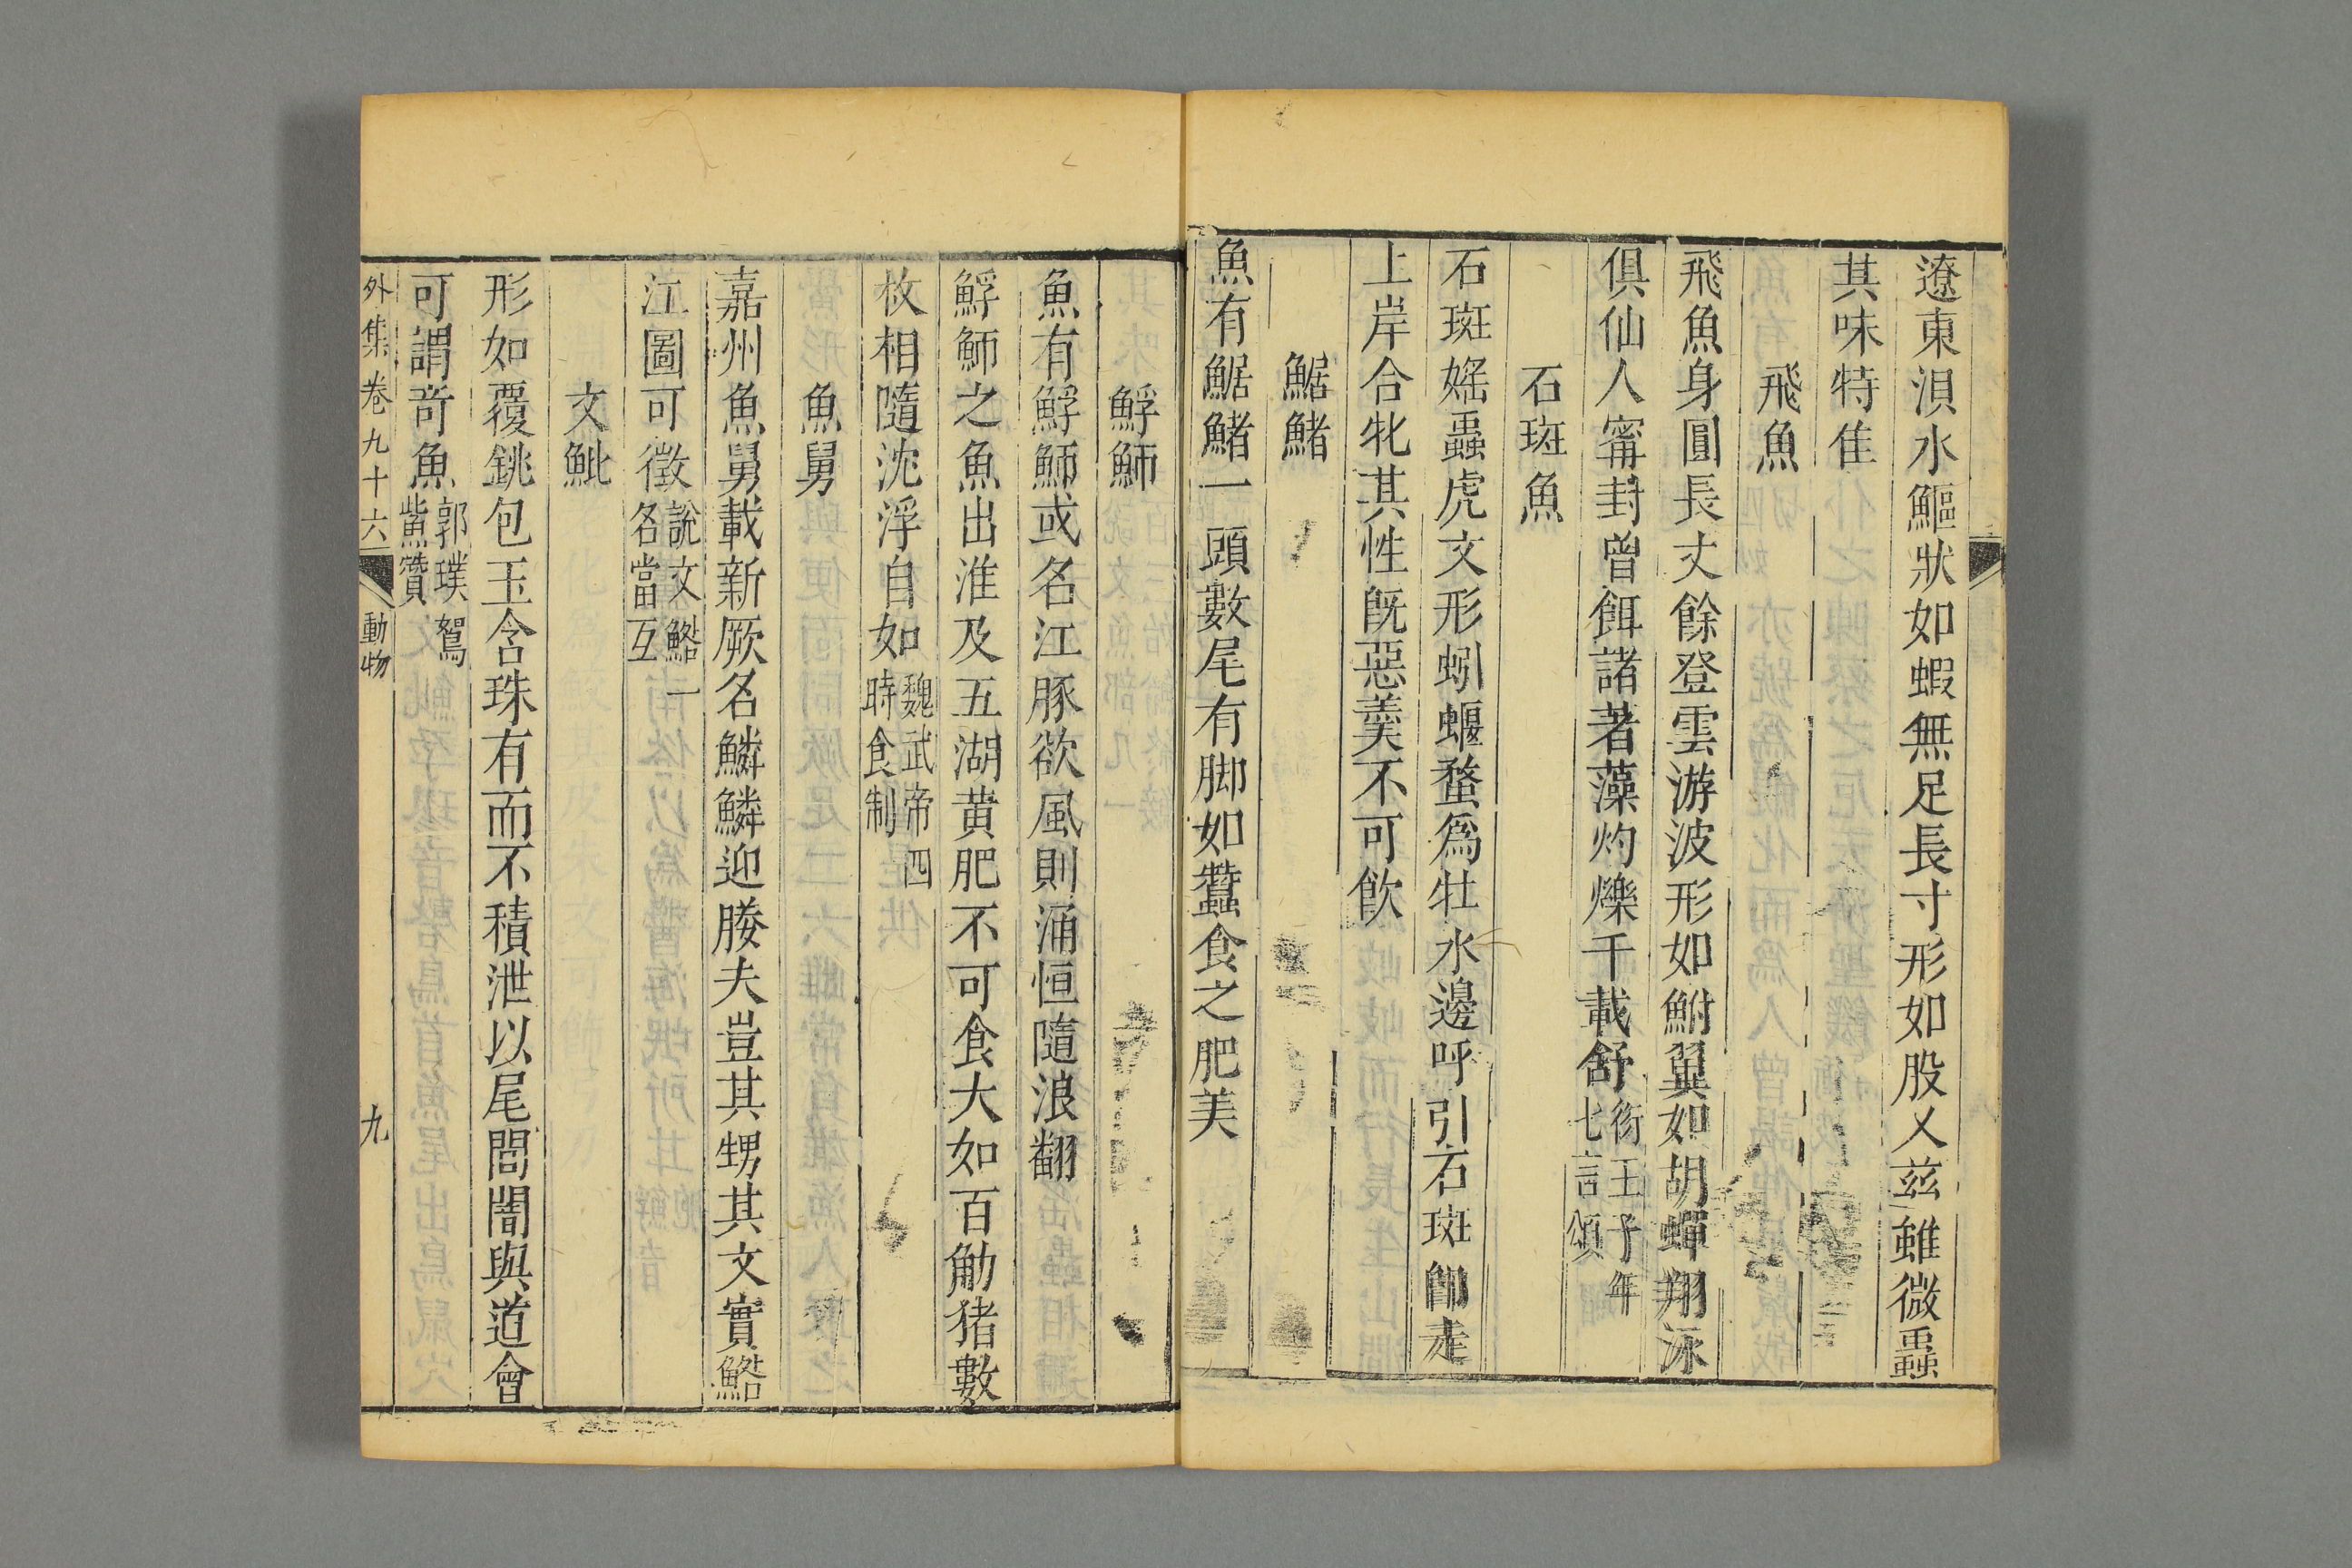 遼東浿水鰸狀如蝦無足長寸形如股乂茲雖微蟲
其味特隹
飛魚
飛魚身圓長丈餘登雲游波形如鮒翼如胡蟬翔泳
俱仙人甯封曾餌諸著藻灼爍千載舒衍王子年
七言頌
石斑魚
石斑媱蟲虎文形蚓蝘蝥爲牡水邊呼引石斑卽走
上岸合牝其性旣惡羹不可飲
鯣鯺
魚有鯣鯺一頭數尾有脚如蠶食之肥美
鯙䲩
魚有䱐䲩或名江豚欲風則涌恒隨浪翻
䱐䲩之魚出淮及五湖黄肥不可食大如百觔猪數
枚相隨沈浮自如魏武帝四
時食制
魚舅
嘉州魚舅載新厥名鱗鱗迎媵夫豈其甥其文實䱟
江圖可徵說文䱟一
名當互
文魮
形如覆銚包玉含珠有而不積泄以尾閭闇與道會
可謂奇魚郭璞鴽
鮆魚贊
外集卷九十六
動物
九